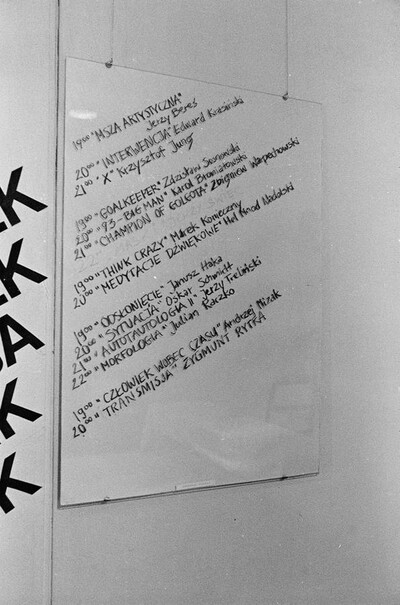 19⁰⁰ "MSZA ARTYSTYCZNA"
Jerzy Bereś
20⁰⁰ "INTERWENCJA" Edward Krasiński
21⁰⁰ "X" Krzysztof Jung
19⁰⁰ "GOALKEEPER" Zdzisław Sosnowski
20⁰⁰ "93-BIG MAN" Karol Broniatowski
21⁰⁰ "CHAMPION OF GOLGOTA" Zbigniew Warpechowski
19⁰⁰ "THINK CRAZY" Marek Konieczny
20⁰⁰ "MEDYTACJE DŹWIĘKOWE"
19⁰⁰ "ODSŁONIĘCIE" Janusz Haka
20⁰⁰ "SYTUACJA" Oskar Schmidt
21⁰⁰ "AUTOTAUTOLOGIA II" Jerzy Treliński
22⁰⁰ "MORFOLOGIA" Julian Raczko
19⁰⁰ "CZŁOWIEK WOBEC CZASU" Andrzej
20⁰⁰ "TRANSMISJA" ZYGMUNT RYTKA
K
K
A
K
K